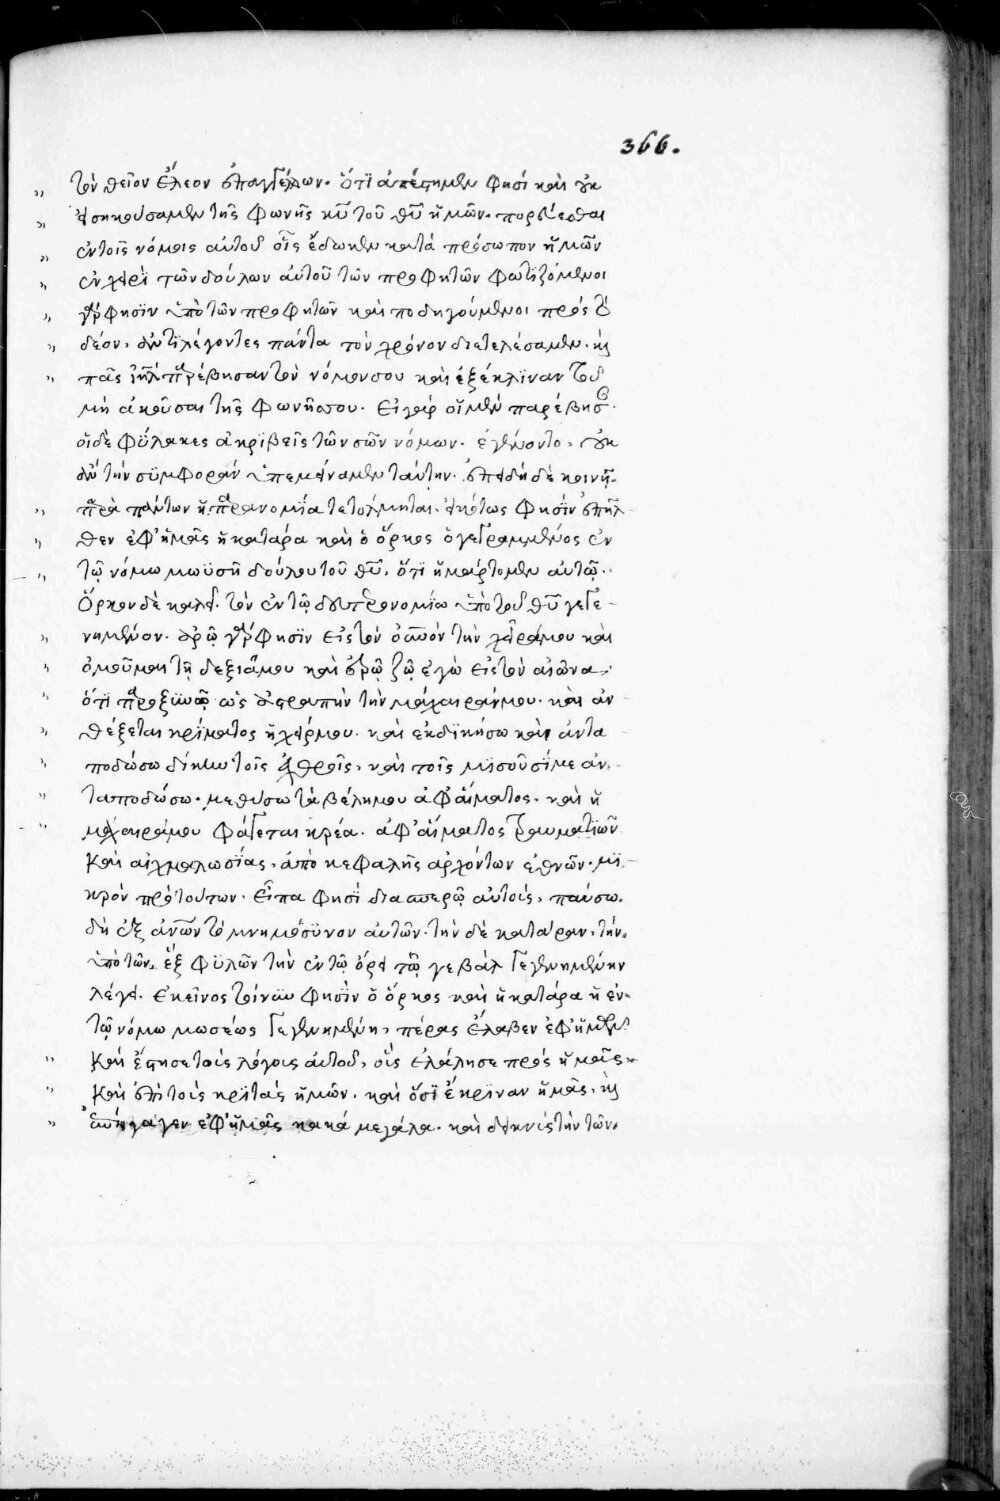 366.
τὸν θεῖον ἔλεον ἐπαγγέλλων. ὅτι ἀπέστημεν φησὶ καὶ οὐκ
εἰσηκούσαμεν τῆς φωνῆς κυ τοῦ θυ ἡμῶν. πορεύεσθαι
ἐν τοῖς νόμοις αὐτοῦ οἷς ἔδωκεν κατὰ πρόσωπον ἡμῶν
ἐν χειρὶ τῶν δούλων αὐτοῦ τῶν προφητῶν φωτιζόμενοι
γάρ φησϊν ὑπὸ τῶν προφητῶν καὶ ποδηγούμενοι πρὸς τὸ
δέον, ἀντιλέγοντες πάντα τὸν χρόνον διετελέσαμεν. καὶ
πᾶς ιηλ παρέβησαν τὸν νόμον σου καὶ ἐξέκλϊναν τοῦ
μὴ ἀκοῦσαι τῆς φωνῆς σου. εἰ γὰρ οἱ μὲν παρέβησαν.
οἱ δὲ φύλακες ἀκριβεῖς τῶν σῶν νόμων. ἐγένοντο, οὐκ
ἂν τὴν συμφορὰν ὑπεμείναμεν ταύτην. ἐπειδὴ δὲ κοινῇ
παρὰ πάντων ἡ παρανομία τετόλμηται. εἰκότως φησὶν ἐπῆλ
θεν ἐφ' ἡμᾶς ἡ κατάρα καὶ ὁ ὅρκος ὁ γεγραμμένος ἐν
τῷ νόμω μωϋσῆ δούλου τοῦ θυ. ὅτι ἡμάρτομεν αὐτῷ.
ὅρκον δὲ καλεῖ. τὸν ἐν τῷ δευτερονομίω ὑπὸ τοῦ θυ γεγε
νημένον. ἀρῶ γάρ φησϊν εἰς τὸν οὐνον τὴν χεῖρά μου καὶ
ὀμοῦμαι τῇ δεξιᾷ μου καὶ ἐρῶ ζῶ ἐγὼ εἰς τὸν αἰῶνα.
ὅτι παροξυνῶ ὡς ἀστραπὴν τὴν μάχαιράν μου. καὶ ἀν
θέξεται κρίματος ἡ χείρ μου. καὶ ἐκδικήσω καὶ ἀντα
ποδώσω δίκην τοῖς ἐχθροῖς, καὶ τοῖς μισοῦσί με ἀν
ταποδώσω. μεθύσω τὰ βέλη μου ἀφ' αἵματος. καὶ ἡ
μάχαιρά μου φάγεται κρέα. ἀφ' αἵματος τραυματιῶν
καὶ αἰχμαλωσίας, ἀπὸ κεφαλῆς ἀρχόντων ἐθνῶν. μϊ
κρὸν πρὸ τούτων. εἶπα φησὶ διασπερῶ αὐτοὺς, παύσω
δὴ ἐξ ἀνων τὸ μνημόσυνον αὐτῶν. τὴν δὲ κατάραν, τὴν
ὑπὸ τῶν ἓξ φυλῶν τὴν ἐν τῷ ὄρει τῷ γεβὰλ γεγενημένην
λέγει. ἐκεῖνος τοίνυν φησὶν ὁ ὅρκος καὶ ἡ κατάρα ἡ ἐν
τῷ νόμω μωσέως γεγενημένη, πέρας ἔλαβεν ἐφ' ἡμῶν
καὶ ἔστησε τοὺς λόγους αὐτοῦ, οὓς ἐλάλησε πρὸς ἡμᾶς
καὶ ἐπὶ τοὺς κριτὰς ἡμῶν. καὶ ὅσοι ἔκριναν ἡμᾶς, καὶ
ἐπήγαγεν ἐφ' ἡμᾶς κακὰ μεγάλα. καὶ δεικνὺς τὴν τῶν